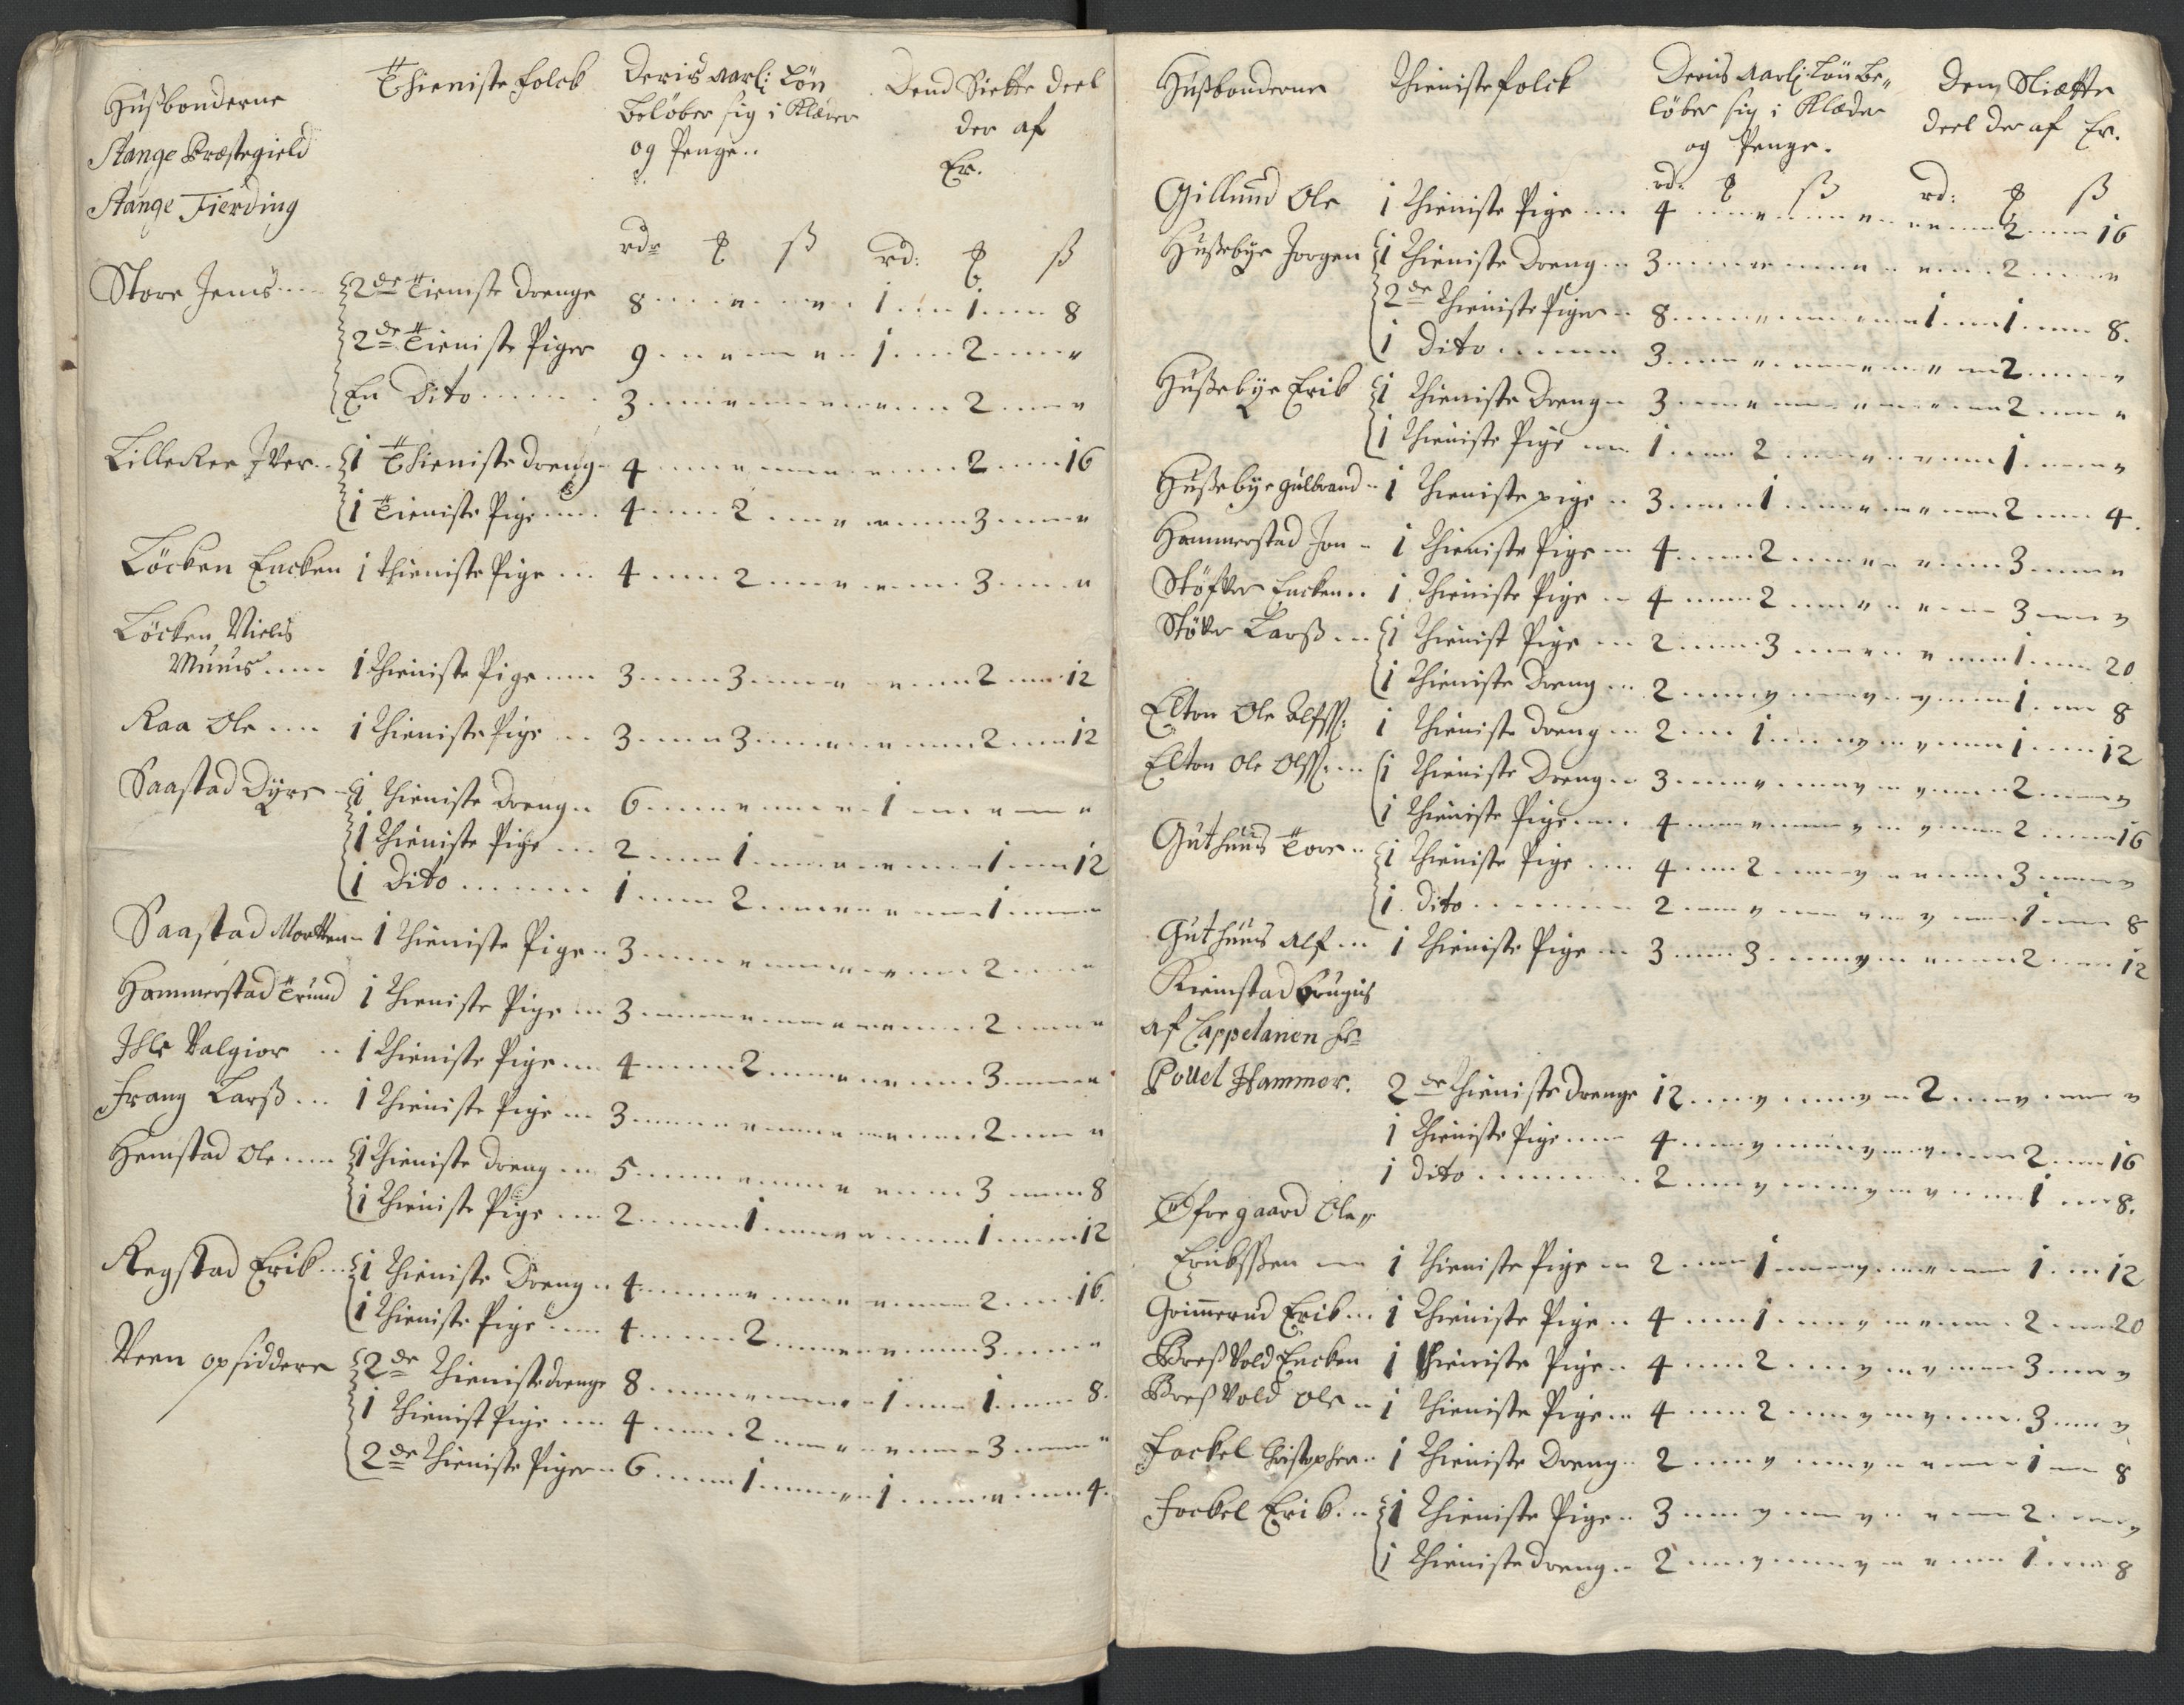 Hußbonderne Thieniste folck Deris aarl: Løn Dend Siette deel
Stange Præstegield beløber sig i Klæder der af
Stange Fierding og Penge.. Er.
rdr ß rd: ß
Store Jens .... 2de Tieniste drenge 8 .... " .... " .... 1 .... 1 .... 8
2de Tieniste Piger 9 .... " .... " .... 1 .... 2 .... "
En Dito ...... 3 .... " .... " .... " .... 2 .... "
Lille Ree Iver .. 1 Thieniste dreng .. 4 .... " .... " .... " .... 2 .... 16
1 Tieniste Pige .... 4 .... 2 .... " .... " .... 3 .... "
Løcken Encken 1 thieniste Pige ... 4 .... 2 .... " .... " .... 3 .... "
Løcken Niels
Muuss .... 1 Thieniste Pige .... 3 .... 3 .... " .... " .... 2 .... 12
Raa Ole .... 1 Thieniste Pige ... 3 .... 3 .... " .... " .... 2 .... 12
Saastad Dyre - 1 Thieniste dreng .. 6 .... " .... " .... 1 .... " .... "
1 Thieniste Pige ... 2 .... 1 .... " .... " .... 1 .... 12
1 Dito ....... 1 .... 2 .... " .... " .... 1 .... "
Saastad Morten - 1 Thieniste Pige .. 3 .... " .... " .... " .... 2 .... "
Hammerstad Trund 1 Thieniste Pige ... 3 .... " .... " .... " .... 2 .... "
Ihle Valgior .. 1 Thieniste Pige ... 4 .... 2 .... " .... " .... 3 .... "
Frang Larß ... 1 Thieniste Pige ... 3 .... " .... " .... " .... 2 .... "
Hemstad Ole .... 1 Thieniste dreng ... 5 .... " .... " .... " .... 3 .... 8
1 Thieniste Pige ... 2 .... 1 .... " .... " .... 1 .... 12
Regstad Erik ... 1 Thieniste Dreng .. 4 .... " .... " .... " .... 2 .... 16.
1 Thieniste Pige .... 4 .... 2 .... " .... " .... 3 .... "
Veen opsiddere 2de Thieniste drenge 8 .... " .... " .... 1 .... 1 .... 8.
1 Thienist Pige .... 4 .... 2 .... " .... " .... 3 .... "
2de Thieniste Piger .. 6 .... 1 .... " .... 1 .... " .... 4.
Hußbonderne Thieniste folck Deris aarl: Løn be"
løber sig i Klæder Den Siætte
og Penge. deel der af Er.
rd: ß rd: ß
Gillund Ole 1 Thieniste Pige .... 4 .... " .... " .... " .... 2 .... 16
Hußebye Jorgen 1 Thieniste Dreng .. 3 .... " .... " .... " .... 2 .... "
2de Thieniste Piger .. 8 .... " .... " .... 1 .... 1 .... 8.
1 Dito ...... 3 .... " .... " .... " .... 2 .... "
Hußebye Erik 1 Thieniste Dreng .. 3 .... " .... " .... " .... 2 .... "
1 Thieniste Pige ... 1 .... 2 .... " .... " .... 1 .... "
Hußebye gulbrand .. 1 Thieniste pige .. 3 .... 1 .... " .... " .... 2 .... 4.
Hammerstad Jon - 1 Thieniste Pige ... 4 .... 2 .... " .... " .... 3 .... "
Støfver Encken .. 1 Thieniste Pige .. 4 .... 2 .... " .... " .... 3 .... "
Støver Larß ... 1 Thienist Pige ... 2 .... 3 .... " .... " .... 1 .... 20
1 Thieniste Dreng ... 2 .... " .... " .... " .... 1 .... 8
Elton Ole Alfß: 1 Thieniste dreng ... 2 .... 1 .... " .... " .... 1 .... 12
Elton Ole Olß: ... 1 Thieniste Dreng .. 3 .... " .... " .... " .... 2 .... "
1 Thieniste Pige .... 4 .... " .... " .... " .... 2 .... 16
Guthuus Tore .. 1 Thieniste Pige .... 4 .... 2 .... " .... " .... 3 .... "
1 Dito ........ 2 .... " .... " .... " .... 1 .... 8
Guthuus Alf ... 1 Thieniste Pige ... 3 .... 3 .... " .... " .... 2 .... 12
Kiemstad brugis
af Cappelanen hr
Pouel Hammer. 2de Thieniste drenge 12 .... " .... " .... 2 .... " .... "
1 Thieniste Pige .... 4 .... " .... " .... " .... 2 .... 16
1 Dito ........ 2 .... " .... " .... " .... 1 .... 8.
Øfre gaard Ole"
Erickßen ... 1 Thieniste Pige ... 2 .... 1 .... " .... " .... 1 .... 12
Grimmerud Erik ... 1 Thieniste Pige .. 4 .... 1 .... " .... " .... 2 .... 20
Breßvold Encken 1 Thieniste Pige .. 4 .... 2 .... " .... " .... 3 .... "
Breßvold Ole .. 1 Thieniste Pige ... 4 .... 2 .... " .... " .... 3 .... "
Fockel Christopher .. 1 Thieniste Dreng .. 2 .... " .... " .... " .... 1 .... 8
Fockel Erik ... 1 Thieniste Pige .. 3 .... " .... " .... " .... 2 .... "
1 Thieniste dreng .. 2 .... " .... " .... " .... 1 .... 8